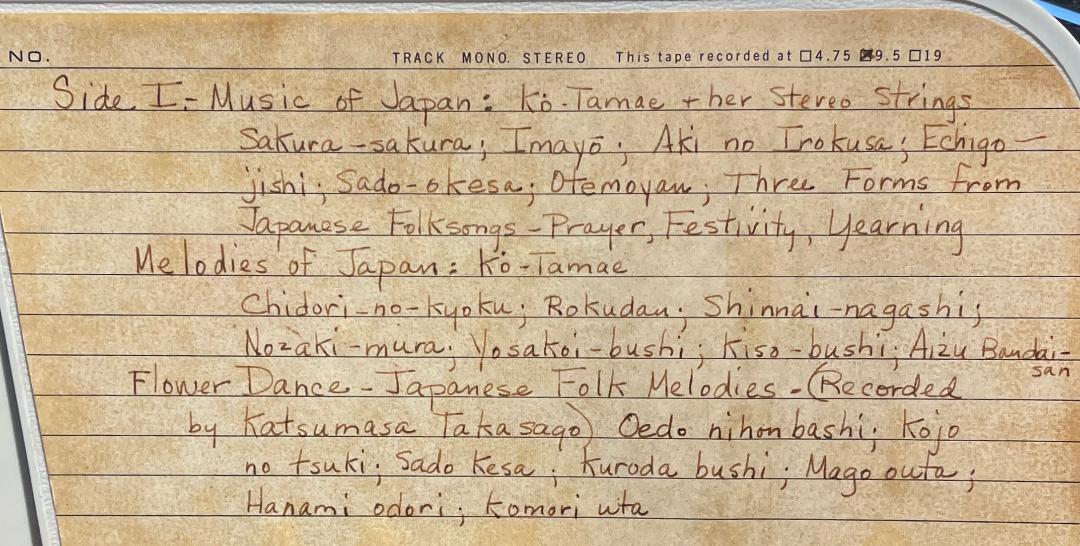 NO. TRACK MONO. STEREO This tape recorded at ☐4.75 ☒9.5 ☐19
Side I - Music of Japan: Kō-Tamae + her Stereo Strings
Sakura-sakura; Imayō; Aki no Irokusa; Echigo-
jishi; Sado-okesa; Otemoyan; Three Forms from
Japanese Folksongs - Prayer, Festivity, Yearning
Melodies of Japan: Kō-Tamae
Chidori-no-kyoku; Rokudan; Shinnai-nagashi;
Nozaki-mura; Yosakoi-bushi; Kiso-bushi; Aizu Bandai-
san
Flower Dance - Japanese Folk Melodies - (Recorded
by Katsumasa Takasago) Oedo nihon bashi; Kojo
no tsuki; Sado Kesa; Kuroda bushi; Mago outa;
Hanami odori; Komori uta